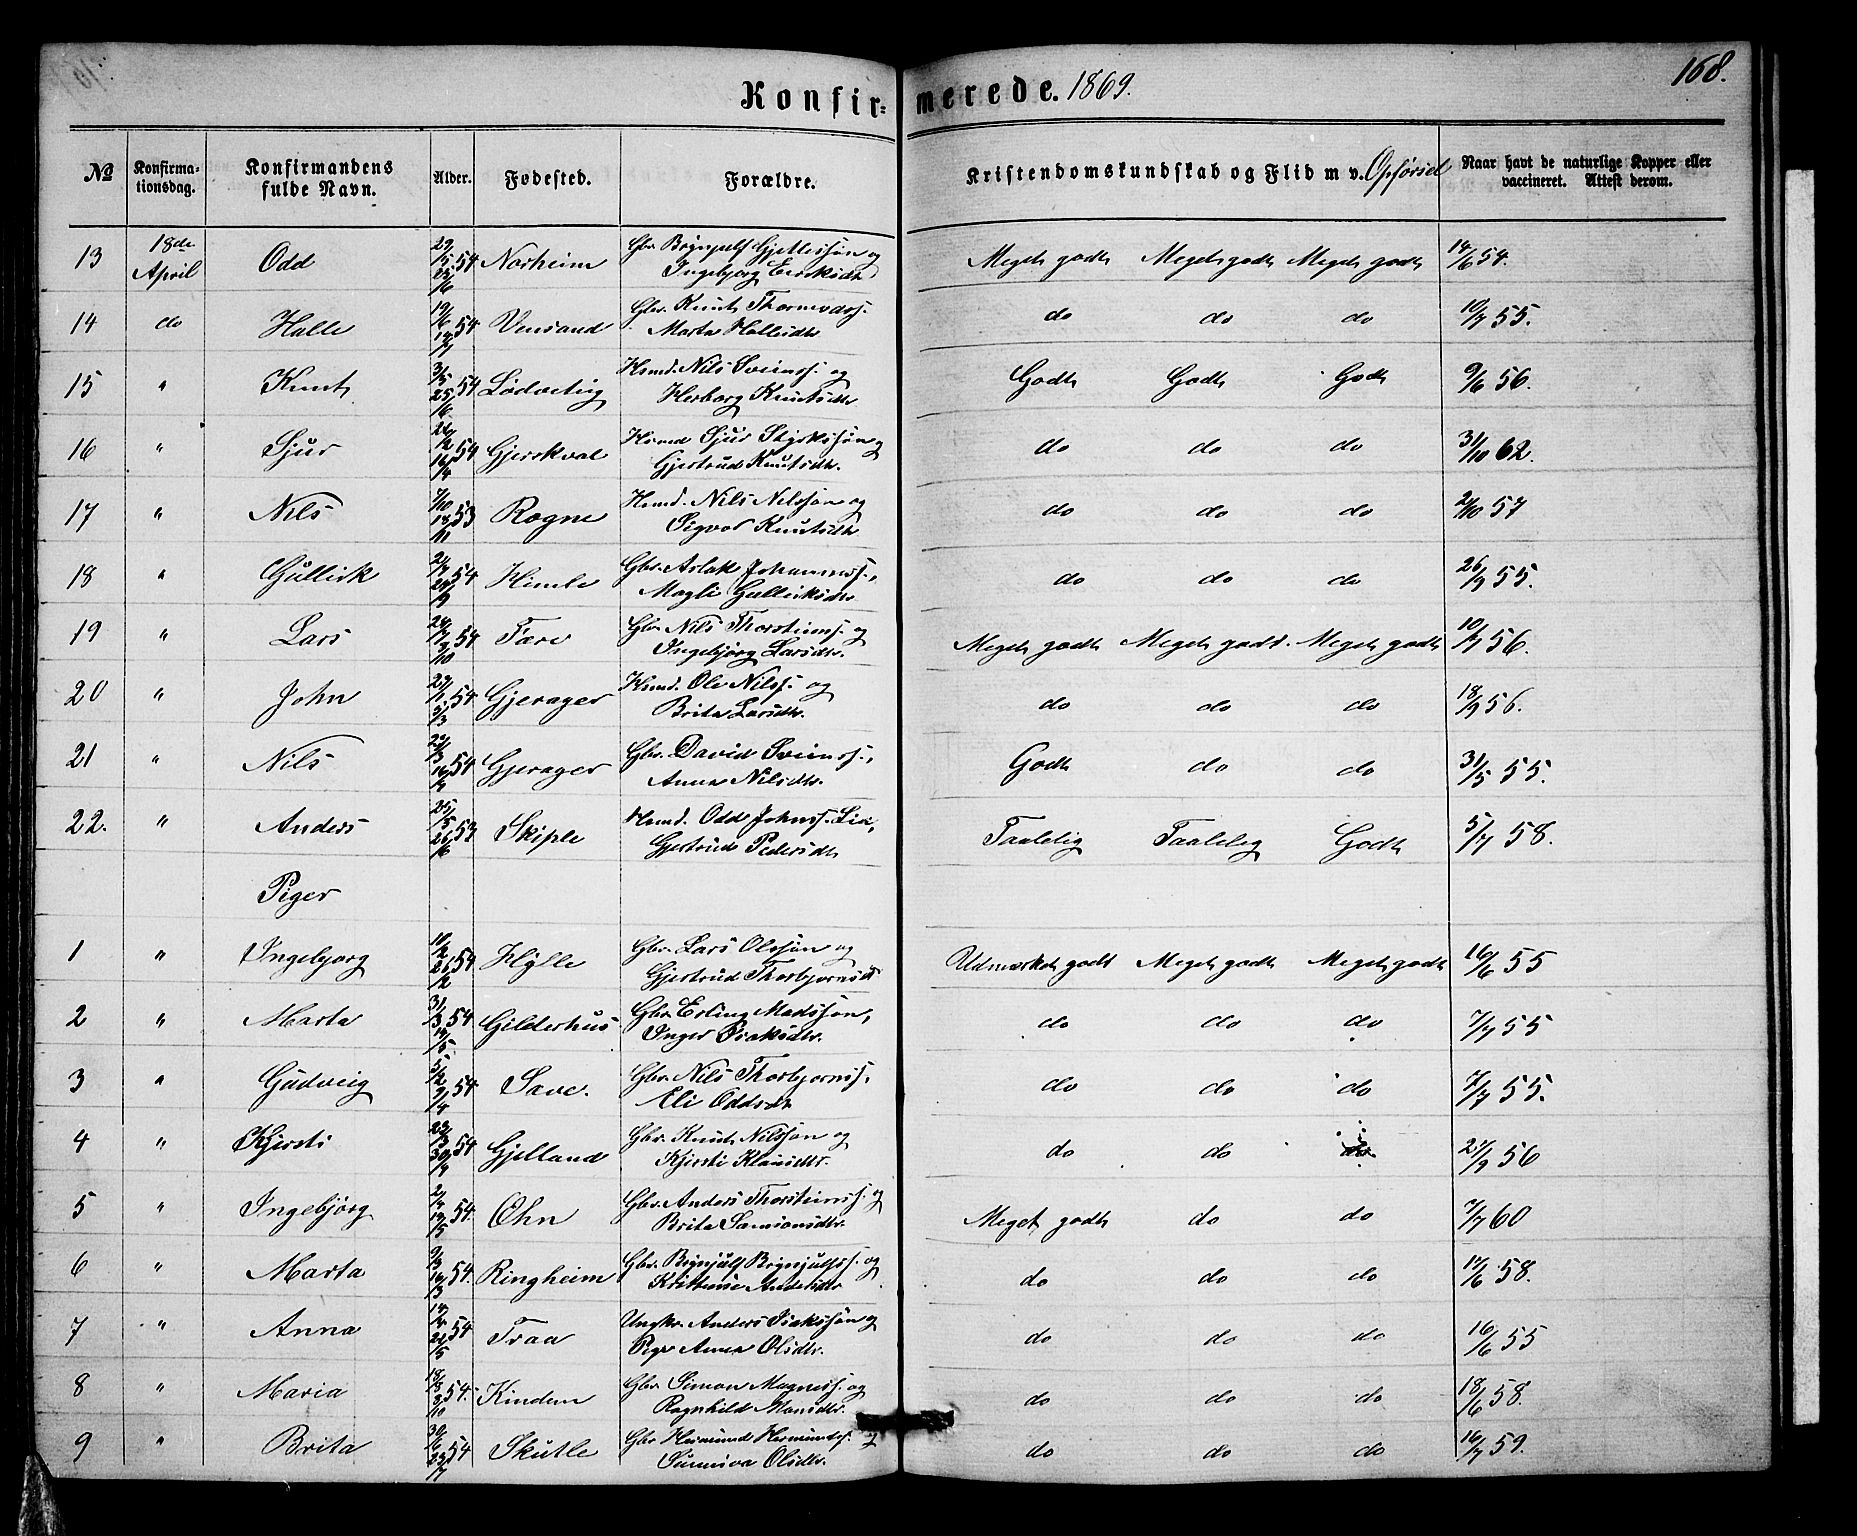 Konfir= merede. 1869. 168.
No Konfirma-tionsdag. Konfirmandens fulde Navn. Alder. Fødested. Forældre. Kristendomskundskab og Flid m v. Opførsel Naar havt de naturlige Kopper eller vaccineret. Attest derom.
13 18de April Odd 54 Norheim Gbr. Gjellessøn og Ingebjorg Meget godt Meget godt Meget godt 14/6 54.
14 do Halle 19/6 54 Vensand Gbr. Knut Marta Hallesdtr do do do 10/7 55.
15 " Knut 3/5 25/6 54 Lødveting Hsmd. Nils Sveinss. og Herborg Knutsdtr Godt Godt Godt 9/6 56.
16 " Sjur 54 Gjerskval Hsmd Sjur og Gjertrud Knutsdtr. do do do 31/10 62.
17 " Nils 7/10 53 Rogne Hsmd. Nils Nilssøn og Sigvor Knutsdtr do do do 2/10 57
18 " Gullik 54 Himle Gbr. Aslak Johanness., Magli Gulliksdtr do do do 26/9 55.
19 " Lars 54 Fære Gbr. Nils Thorsteinss. og Ingebjørg Larsdtr. Meget godt Meget godt. Meget godt 10/7 56.
20 " John 54 Gjerager Hsmd. Ole Nilss. og Brita Larsdtr. do do do 18/9 56.
21 " Nils 54 Gjerager Gbr. David Sveinss., Anna Nilsdtr. Godt do do 31/5 55.
22. " Anders 25/5 Skiple Hsmd. Odd Johnss. Lie, Gjertrud Pedersdtr Taalelig Taalelig Godt 5/7 58.
Piger
1 " Ingebjorg 10/2 54 Hylle Gbr. Lars Olssøn og Gjertrud Thorbjornsdt Udmærket godt Meget godt Meget godt 16/6 55
2 " Marta 31/3 54 Gilderhus Gbr. Erling Madssøn, Inger Isaksdtr. do do do 7/7 55
3 " Gudveig 54 Save. Gbr. Nils Thorbjornss., Eli Oddsdt do do do 7/7 55.
4 " Kjersti 54 Gjelland Gbr. Knut Nilssøn og Kjersti Klausdtr. do do do 56
5 " Ingebjørg 54. Ohn Gbr. Anders Thorsteinss. og Brita Samsonsdtr. Meget godt do do 7/7 60
6 " Marta 54. Ringheim Gbr. Brynjulf Brynjulfss. og Kristense Andersdtr do do do 58.
7 " Anna 54 Traa Ungkr. Anders Isakssøn og Pige Anna Olsdtr. do do do 16/6 55
8 " Maria 54. Kindem Gbr. Simon Magness. og Ragnhild Monsdtr. do do do 18/6 58.
9 " Brita 30/6 54 Skutle Gbr Hermund Hermundss. og Sunniva Olsdtr. do do do 16/7 59.